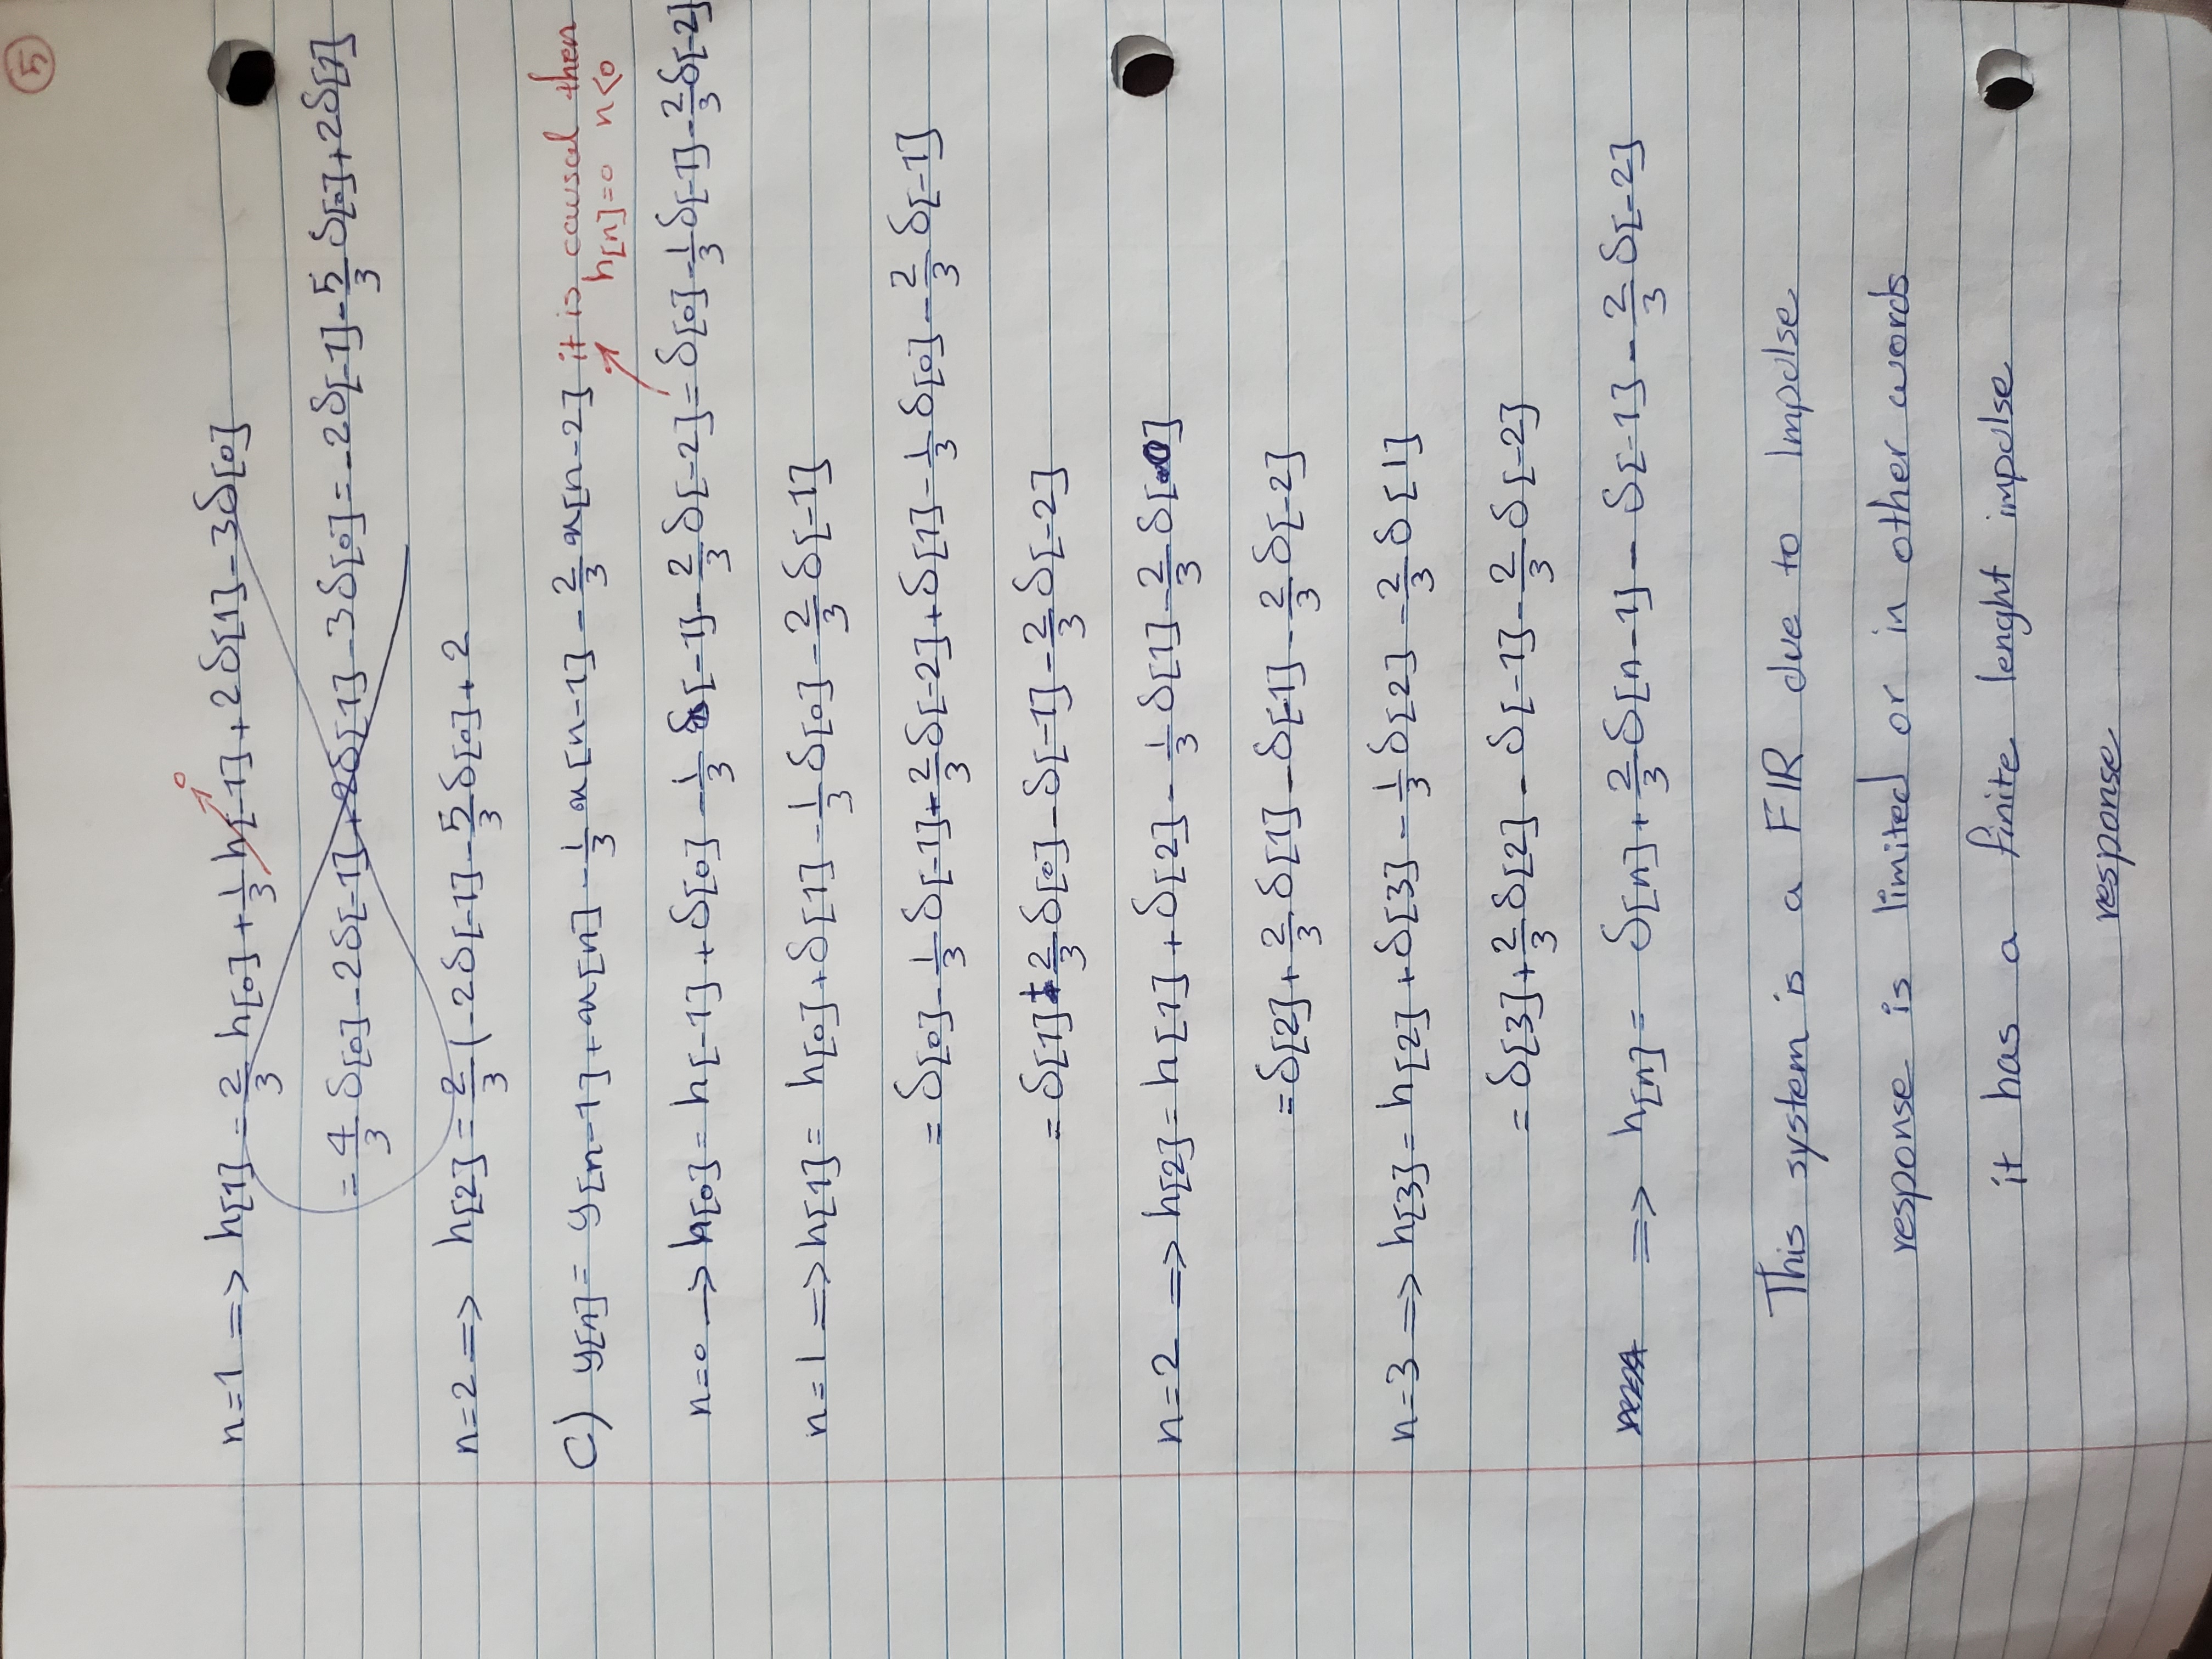 ⑤
n=1 => h[1] = 2/3 h[0] + 1/3 h[-1] + 2δ[1] - 3δ[0]
0
= 4/3 δ[0] - 2δ[-1] + 2δ[1] - 3δ[0] = -2δ[-1] - 5/3 δ[0] + 2δ[1]
n=2 => h[2] = 2/3 (-2δ[-1] - 5/3 δ[0] + 2
C) y[n] = y[n-1] + x[n] - 1/3 x[n-1] - 2/3 x[n-2] it is causal then
h[n]=0 n<0
n=0 → h[0] = h[-1] + δ[0] - 1/3 δ[-1] - 2/3 δ[-2] = δ[0] - 1/3 δ[-1] - 2/3 δ[-2]
n=1 => h[1] = h[0] + δ[1] - 1/3 δ[0] - 2/3 δ[-1]
= δ[0] - 1/3 δ[-1] + 2/3 δ[-2] + δ[1] - 1/3 δ[0] - 2/3 δ[-1]
= δ[1] + 2/3 δ[0] - δ[-1] - 2/3 δ[-2]
n=2 => h[2] = h[1] + δ[2] - 1/3 δ[1] - 2/3 δ[0]
= δ[2] + 2/3 δ[1] - δ[-1] - 2/3 δ[-2]
n=3 => h[3] = h[2] + δ[3] - 1/3 δ[2] - 2/3 δ[1]
= δ[3] + 2/3 δ[2] - δ[-1] - 2/3 δ[-2]
=> h[n] = δ[n] + 2/3 δ[n-1] - δ[-1] - 2/3 δ[-2]
This system is a FIR due to Impulse
response is limited or in other words
it has a finite lenght impulse
response